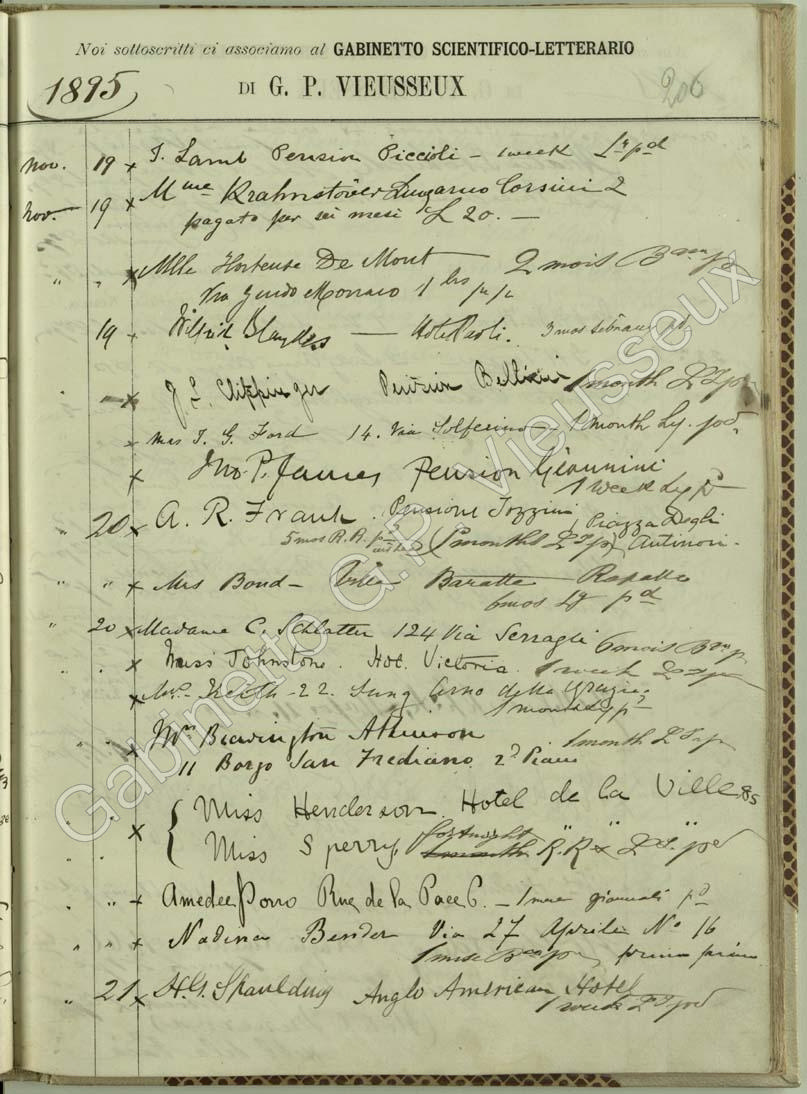 Noi sottoscritti ci associamo al GABINETTO SCIENTIFICO-LETTERARIO
1895 DI G. P. VIEUSSEUX 206
Nov. 19 x J. Lamb Pension Piccioli - 1 week Ly pd
Nov. 19 x Mme Krahnstöver Lungarno Corsini 2
pagato per sei mesi L 20. —
" " x Mlle Hortense De Mont — 2 mois
Via Guido Monaco 1
19 Wilfrid Blaydes — Hotel Paoli. 3 mos pd
x J. L. Clippinger Pension Bellini 1 month
x Mrs J. G. Ford 14. Via Solferino - 1 month Ly. pd.
x Jno. P. James Pension Giannini
1 week Ly pd
20 x A. R. Frank. Pensione Tozzini Piazza Degli
5 mos R.R. pd (5 months pd) Antinori.
" " x Mrs Bond - Villa Baratta Rapallo
6 mos Ly pd
" 20 x Madame C. Schlatter 124 Via Serragli 6 mois
" x Miss Johnstone. Hot. Victoria. 1 week
x Mrs. Keith - 22. Lung Arno delle Grazie.
1 month Ly pd
" x Mrs Brevington Atkinson 1 month
11 Borgo San Frediano 2º Piano
" " x { Miss Henderson Hotel de la Ville. 85
" " Miss Sperry. fortnight " " " "
1 month R.R. pd
" " x Amedee Porro Rue de la Pace 6. - 1 mese giornali pd
" " x Nadina Bender Via 27 Aprile Nº 16
1 mese primo piano
" 21 x H. G. Spaulding Anglo American Hotel
1 week pd
Gabinetto G.P. Vieusseux